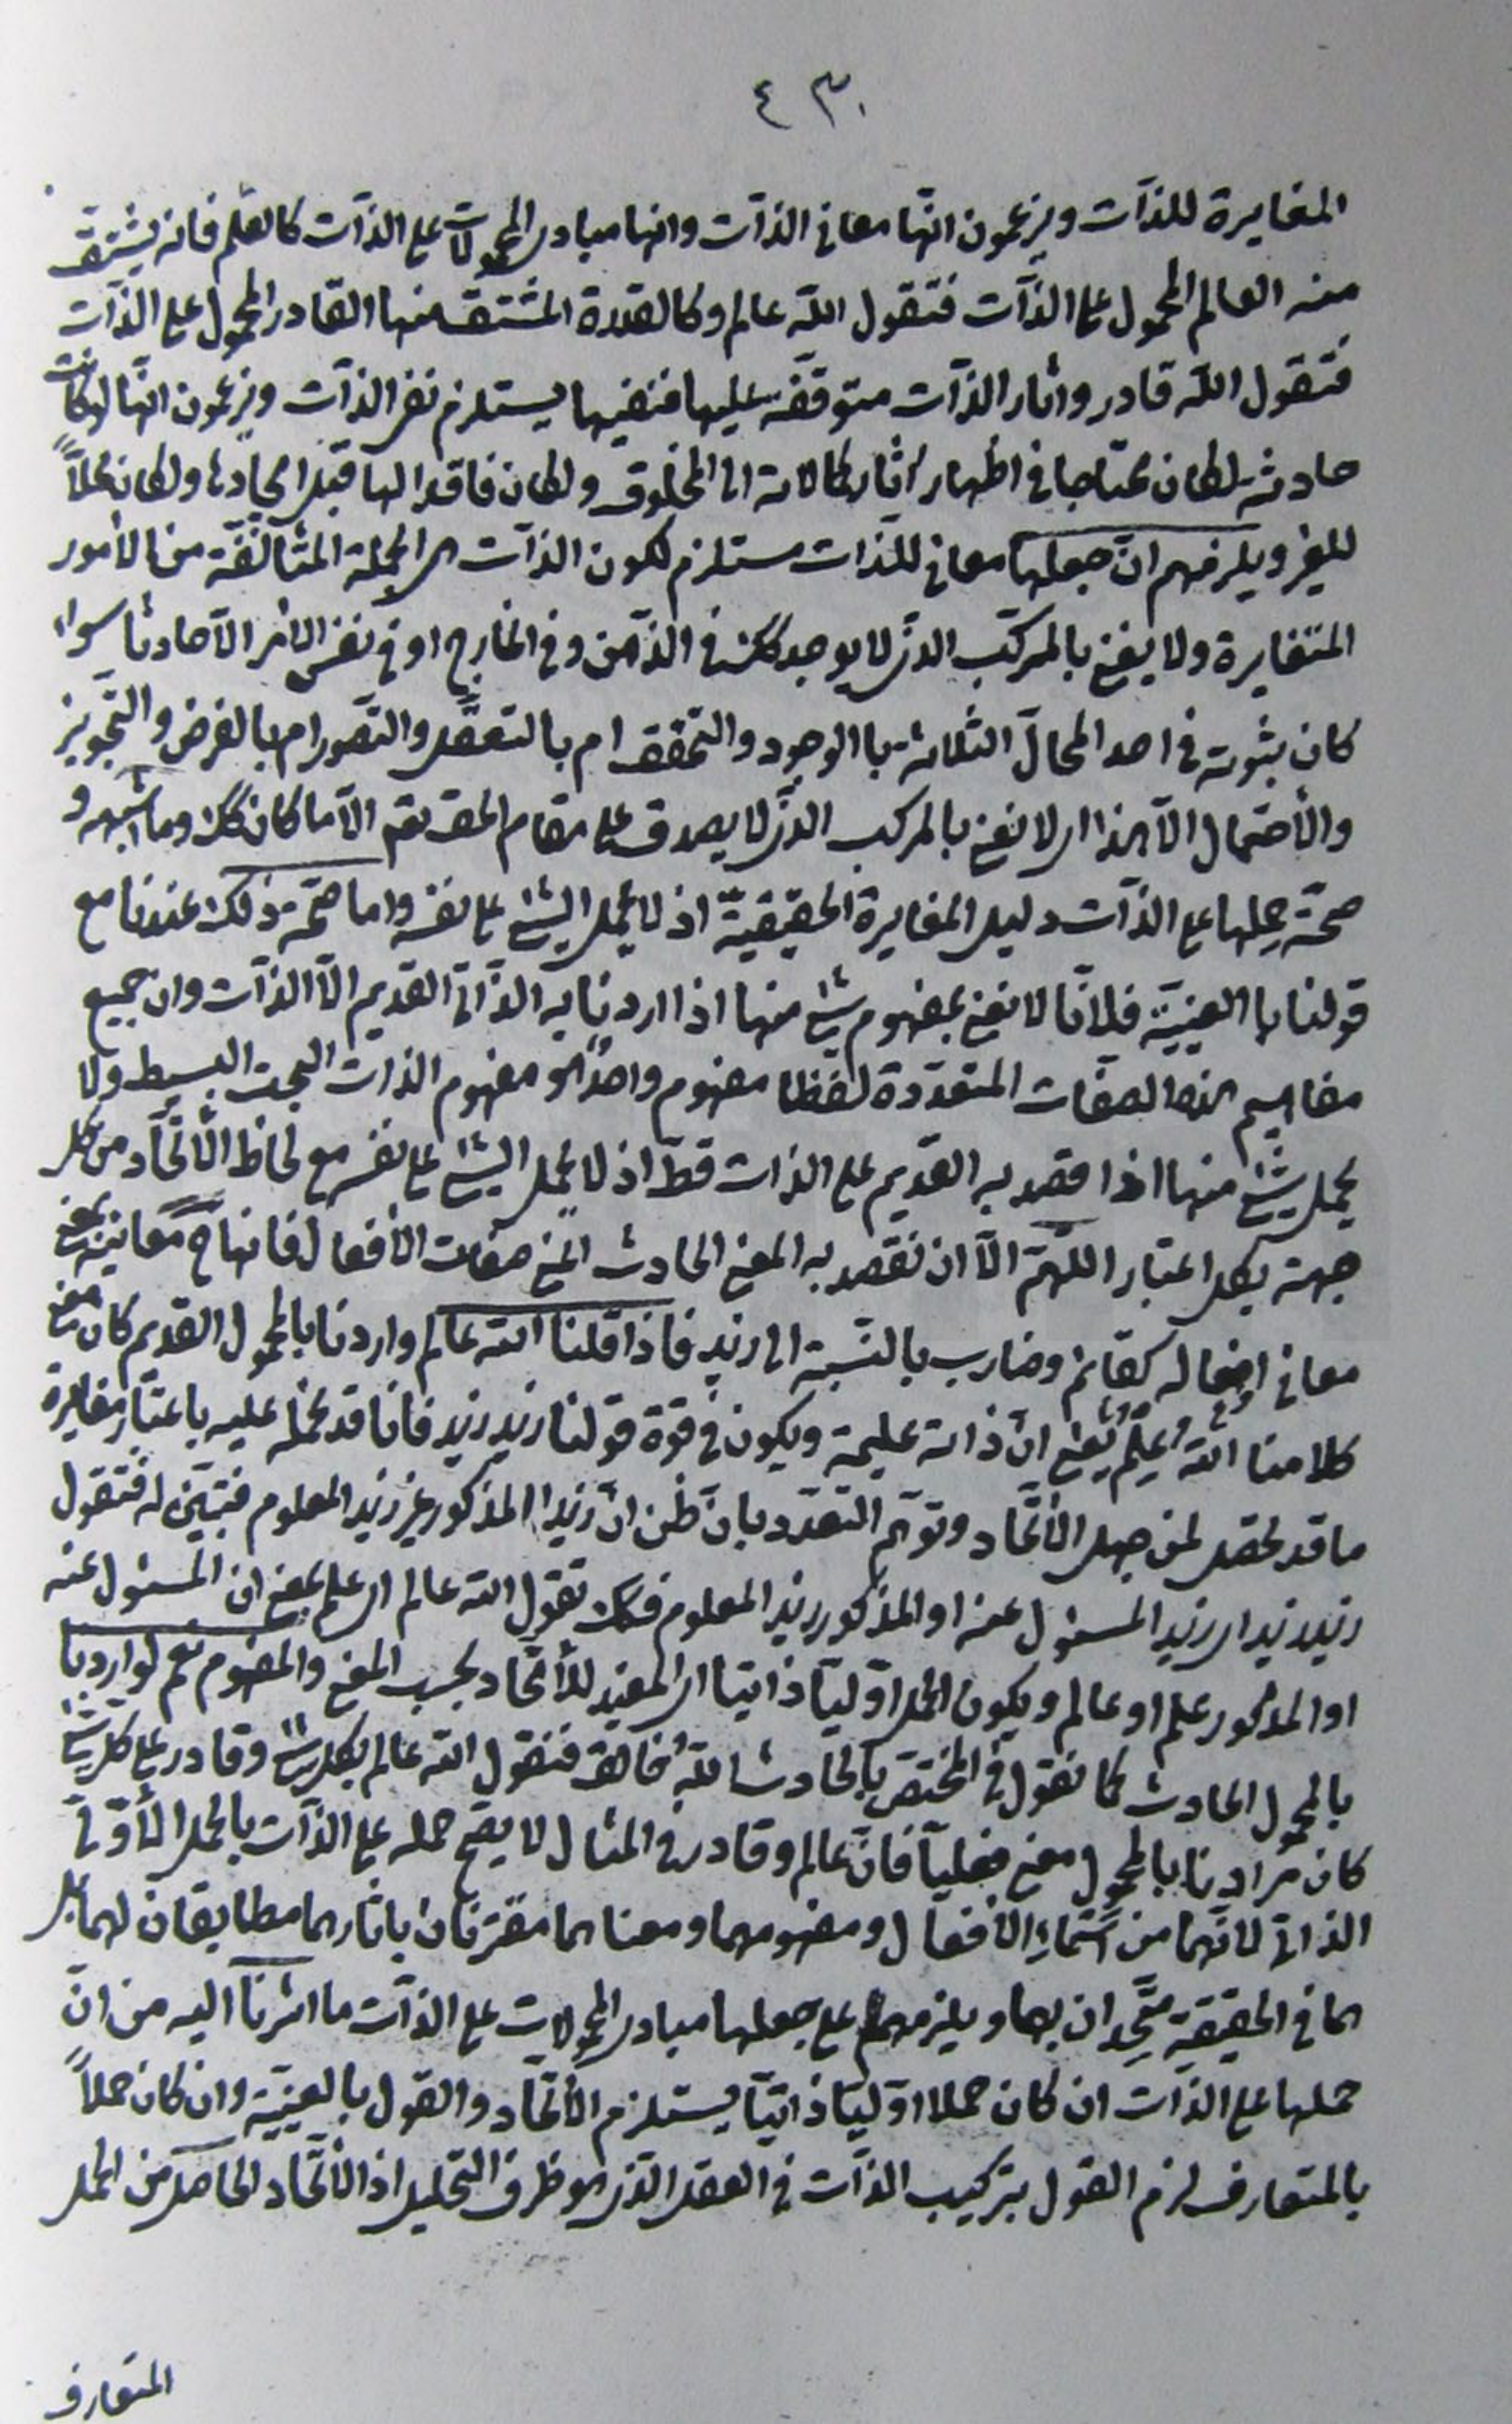 ٤٣٠
المغايرة للذآت ويزعمون انّها معانى الذآت وانها مبادى المحمولات على الذآت كالعلم فانه يشتق
منه العالم المحمول على الذآت فتقول اللّه عالم وكالقدرة المشتق منها القادر المحمول على الذآت
فتقول اللّه قادر واثار الذآت متوقّفة عليها فنفيها يستلزم نفى الذآت ويزعمون انّها لو كانت
حادثة لكان محتاجا فى اظهار اثار كمالاته الى المخلوق ولكان فاقدا لها قبل ايجادها ولكان محلاًّ
للغير ويلزمهم انّ جعلها معانى للذات مستلزم لكون الذآت هى الجملة المتألّفة من الأمور
المتغايرة ولا يعنى بالمركّب الذى لا يوجد كك فى الذّهن وفى الخارج او فى نفس الأمر الاّ حادثا سواء
كان ثبوته فى احد المحالّ الثلاثة باالوجود والتحقق ام بالتعقّل والتصور ام بالفرض والتجويز
والأحتمال الاّ هذا اى لا نعنى بالمركب الذى لا يصدق على مقام الحق تعم الاّ ما كان كك وما اشبهه و
صحّة حملها على الذآت دليل المغايرة الحقيقيّة اذ لا يحمل الشئ على نفسه واما صحّة ذلك عندنا مع
قولنا باالعينيّة فلانّا لا نعنى بمفهوم شئ منها اذا اردنا به الذّاتىّ القديم الاّ الذآت وان جميع
مفاهيم هذه الصفات المتعدّدة لفظا مفهوم واحد هو مفهوم الذات البحت البسيط ولا
يحمل شئ منها اذا قصد به القديم على الذات قطّ اذ لا يحمل الشئ على نفسه مع لحاظ الأتّحاد من كل
جهة بكل اعتبار اللّهمّ الاّ ان نقصد به المعنى الحادث اعنى صفات الأفعال فانها ح معانيه بمعنى
معانى افعاله كقائم وضارب بالنّسبة الى زيد فاذا قلنا اللّه عالم واردنا بالمحمول القديم كان معنى
كلامنا اللّه عليم يعنى انّ ذاته عليمة ويكون فى قوّة قولنا زيد زيد فانا قد نحمله عليه باعتبار مغايرة
ما قد تحصل لمن جهل الأتّحاد وتوهّم التّعدّد بان ظن انّ زيدا المذكور غير زيد المعلوم فتبيّن له فتقول
زيد زيد اى زيد المسئول عنه او المذكور زيد المعلوم فكك تقول اللّه عالم اى علم بمعنى ان المسئول عنه
او المذكور علم او عالم ويكون الحمل اوّليّا ذاتيا اى المفيد للأتّحاد بحسب المعنى والمفهوم نعم لو اردنا
بالمحمول الحادث كما نقول فى المختصّ بالحادث اللّه خالق فنقول اللّه عالم بكل شئ وقادر على كل شئ
كان مرادنا بالمحمول معنى فعليّا فانّ عالم وقادر فى المثال لا يصحّ حمله على الذآت بالحمل الأوّلىّ
الذاتى لانّهما من اسماء الأفعال ومفهومهما ومعناهما مقترنان باثارهما مطابقان لهما بل
هما فى الحقيقة متّحدان بها ويلزمهم على جعلها مبادى المحمولات على الذآت ما اشرنا اليه من انّ
حملها على الذآت ان كان حملا اوّليّا ذاتيّا يستلزم الأتّحاد والقول بالعينيّة وان كان حملاً
بالمتعارف لزم القول بتركيب الذآت فى العقل الذى هو ظرف التحليل اذ الأتّحاد الحاصل من الحمل
المتعارف